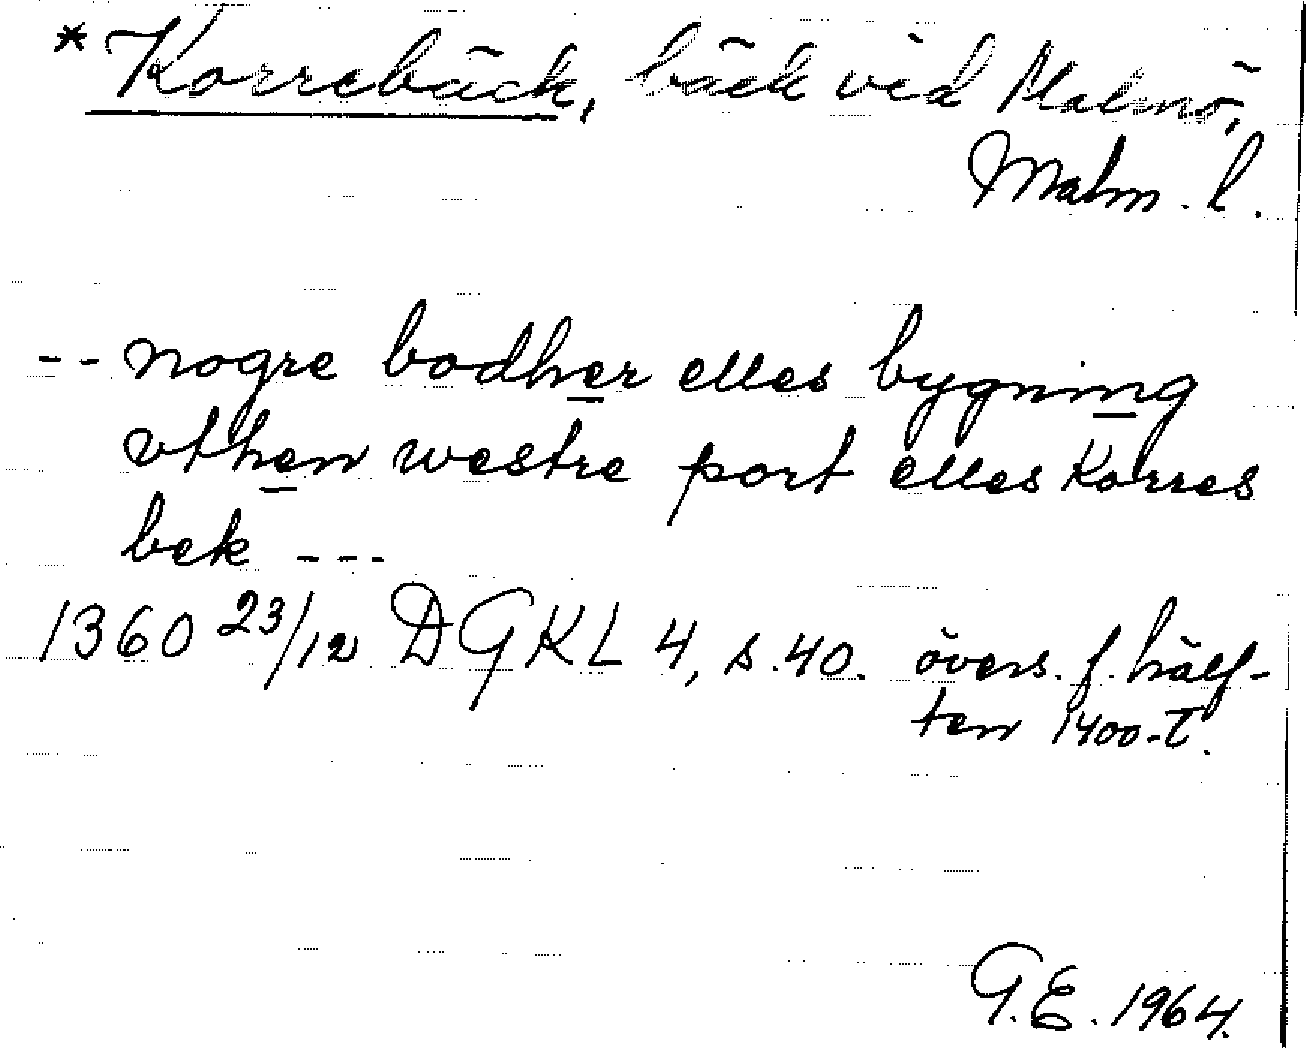 * Korrebäck, bäck vid Malmö,
Malm. l.
-- nogre bodher elles bygning
vthen westre port elles Korres
bek ---
1360 23/12 DGKL 4, s.40. övers. f. hälf-
ten 1400-t.
G.E. 1964.